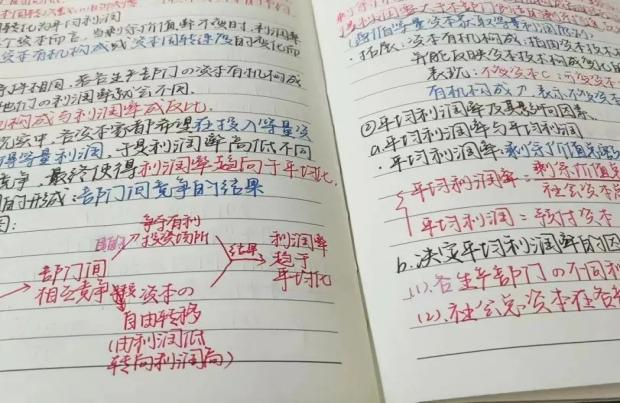 转化为平均利润
个资本而言，当剩余价值率不变时，利润率
资本有机构成或资本周转速度的变化而
条件相同，若各生产部门的资本有机构成
他们的利润率就会不同。
构成与利润率成反比.
在投入等量资
得等量利润，于是利润率高低不同
竞争，最终使得利润率趋向于平均化.
的形成：部门间竞争的结果
图：
目的
争夺有利
投资场所
部门间
相互竞争
资本的
自由转移
(由利润低
转向利润高)
结果
利润率
趋于
平均化
(等价
·拓展：资本有机构成：指由资本技术
并能反映资本技术构成变化
表示：不变资本C：可变资本
有机构成↗，表示不变资本
②平均利润率及其影响因素.
a.平均利润率与平均利润
·平均利润率：剩余价值总
平均利润率＝剩余价值总
社会资本
平均利润＝预付资本
b.决定平均利润率的因
(1).各生产部门的不同利
(2).社会总资本在各